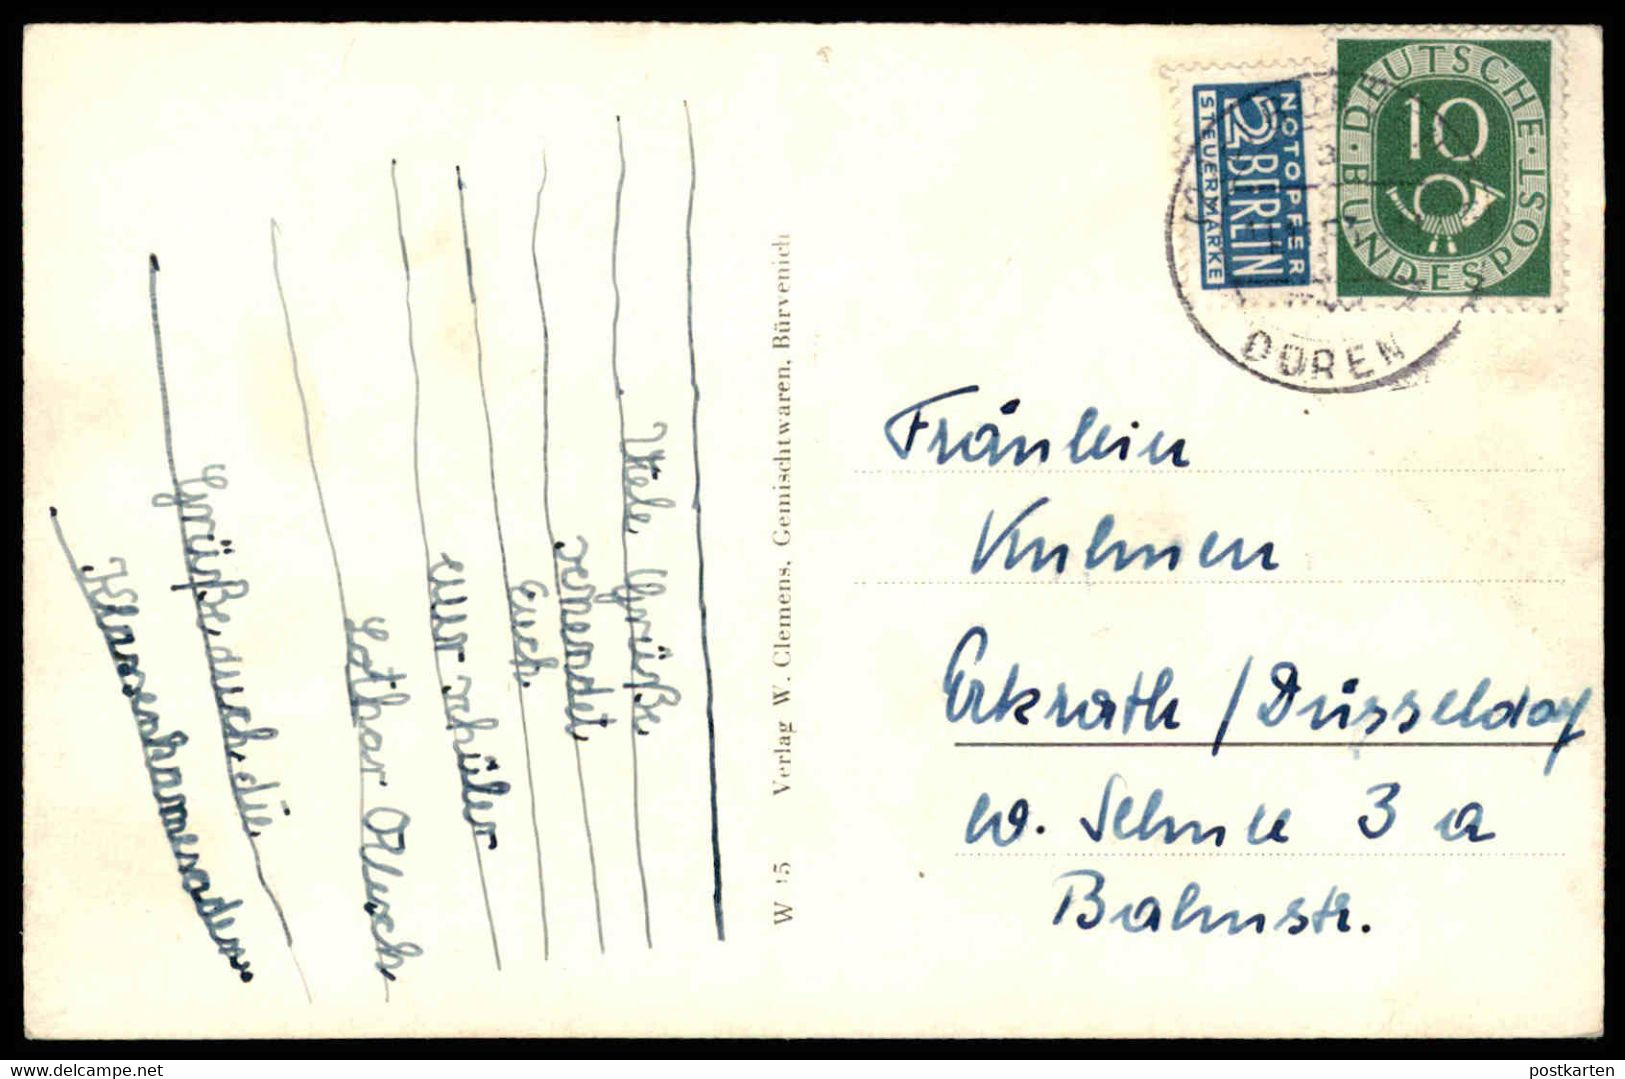 Viele Grüße
sendet
Euch
eur schüler
Lothar
Grüße auch die
Klassenkameraden.
W 15 Verlag W. Clemens, Gemischtwaren, Bürvenich
NOTOPFER
2 BERLIN
STEUERMARKE
DEUTSCHE BUNDESPOST
10
DÜREN
Fräulein
Kulmen
Erkrath / Düsseldorf
w. Schule 3 a
Bahnstr.
www.delcampe.net
postkarten